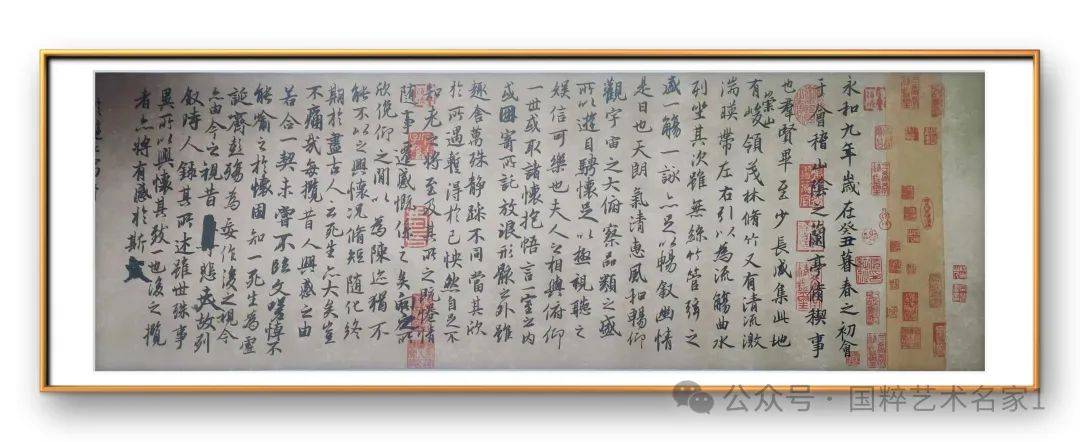 永和九年歲在癸丑暮春之初會
于會稽山陰之蘭亭脩稧事
也羣賢畢至少長咸集此地
有崇山峻領茂林脩竹又有清流激
湍暎帶左右引以為流觴曲水
列坐其次雖無絲竹管弦之
盛一觴一詠亦足以暢叙幽情
是日也天朗氣清惠風和暢仰
觀宇宙之大俯察品類之盛
所以遊目騁懷足以極視聽之
娛信可樂也夫人之相與俯仰
一世或取諸懷抱悟言一室之內
或因寄所託放浪形骸之外雖
趣舍萬殊静躁不同當其欣
於所遇暫得於己快然自足不
知老之將至及其所之既惓情
隨事遷感慨係之矣向之所
欣俛仰之間以為陳迹猶不
能不以之興懷況脩短隨化終
期於盡古人云死生亦大矣豈
不痛哉每攬昔人興感之由
若合一契未嘗不臨文嗟悼不
能喻之於懷固知一死生為虛
誕齊彭殤為妄作後之視今
亦由今之視昔悲夫故列
叙時人錄其所述雖世殊事
異所以興懷其致一也後之攬
者亦將有感於斯文
公众号 · 国粹艺术名家1